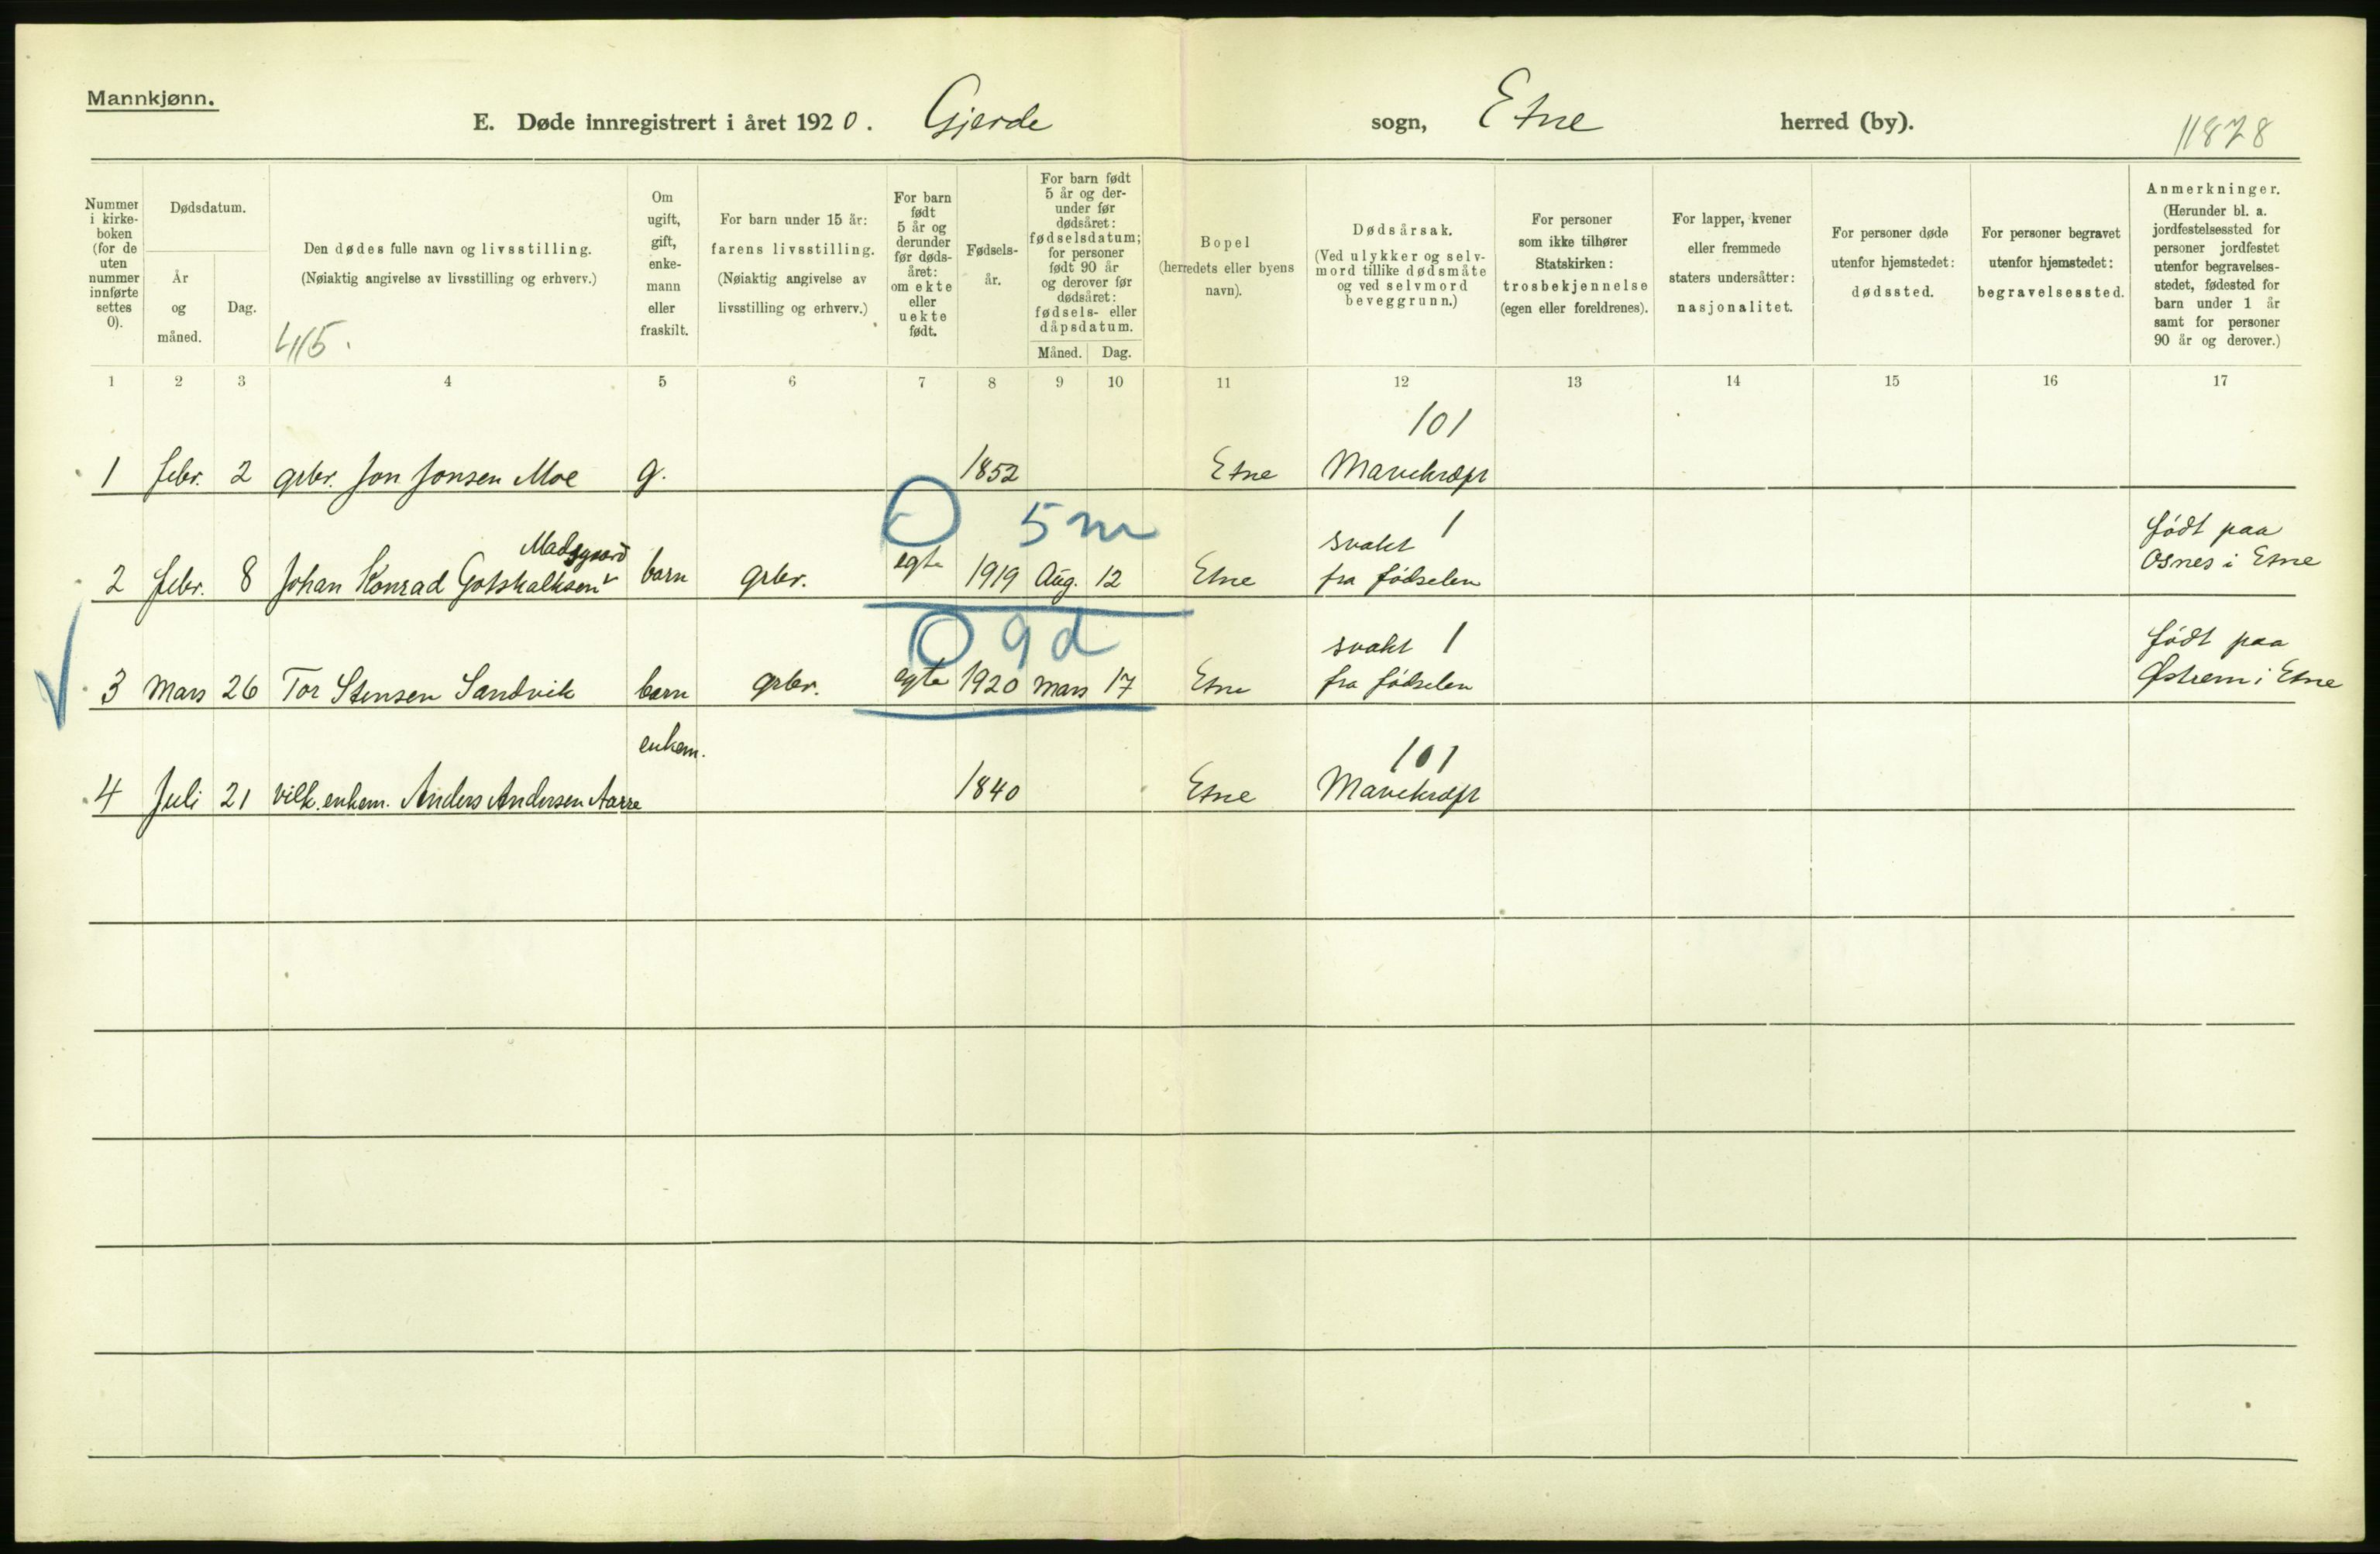 Mannkjønn.
E. Døde innregistrert i året 1920. Gjerde sogn, Etne herred (by).
11878
Nummer i kirke-boken (for de uten nummer innførte settes 0).
Dødsdatum.
År og måned.
Dag.
Den dødes fulle navn og livsstilling.
(Nøiaktig angivelse av livsstilling og erhverv.)
415.
Om ugift, gift, enke-mann eller fraskilt.
For barn under 15 år: farens livsstilling.
(Nøiaktig angivelse av livsstilling og erhverv.)
For barn født 5 år og derunder før døds-året: om ekte eller uekte født.
Fødsels-år.
For barn født 5 år og der-under før dødsåret: fødselsdatum; for personer født 90 år og derover før dødsåret: fødsels- eller dåpsdatum.
Måned. Dag.
Bopel (herredets eller byens navn).
Dødsårsak.
(Ved ulykker og selv-mord tillike dødsmåte og ved selvmord beveggrunn.)
For personer som ikke tilhører Statskirken: trosbekjennelse (egen eller foreldrenes).
For lapper, kvener eller fremmede staters undersåtter: nasjonalitet.
For personer døde utenfor hjemstedet: dødssted.
For personer begravet utenfor hjemstedet: begravelsessted.
Anmerkninger.
(Herunder bl. a. jordfestelsessted for personer jordfestet utenfor begravelses-stedet, fødested for barn under 1 år samt for personer 90 år og derover.)
1 2 3 4 5 6 7 8 9 10 11 12 13 14 15 16 17
101
1 febr. 2 grbr. Jon Jonsen Moe g. 1852 Etne Mavekræft
5 m
Madsgaard svakt 1 født paa
2 febr. 8 Johan Konrad Gotskalksen barn grbr. egte 1919 Aug. 12 Etne fra fødselen Osnes i Etne
9 d
svakt 1 født paa
3 Mars 26 Tor Stensen Sandvik barn grbr. egte 1920 mars 17 Etne fra fødselen Østrem i Etne
enkem. 101
4 Juli 21 vilk. enkem. Anders Andersen Aarre 1840 Etne Mavekræft